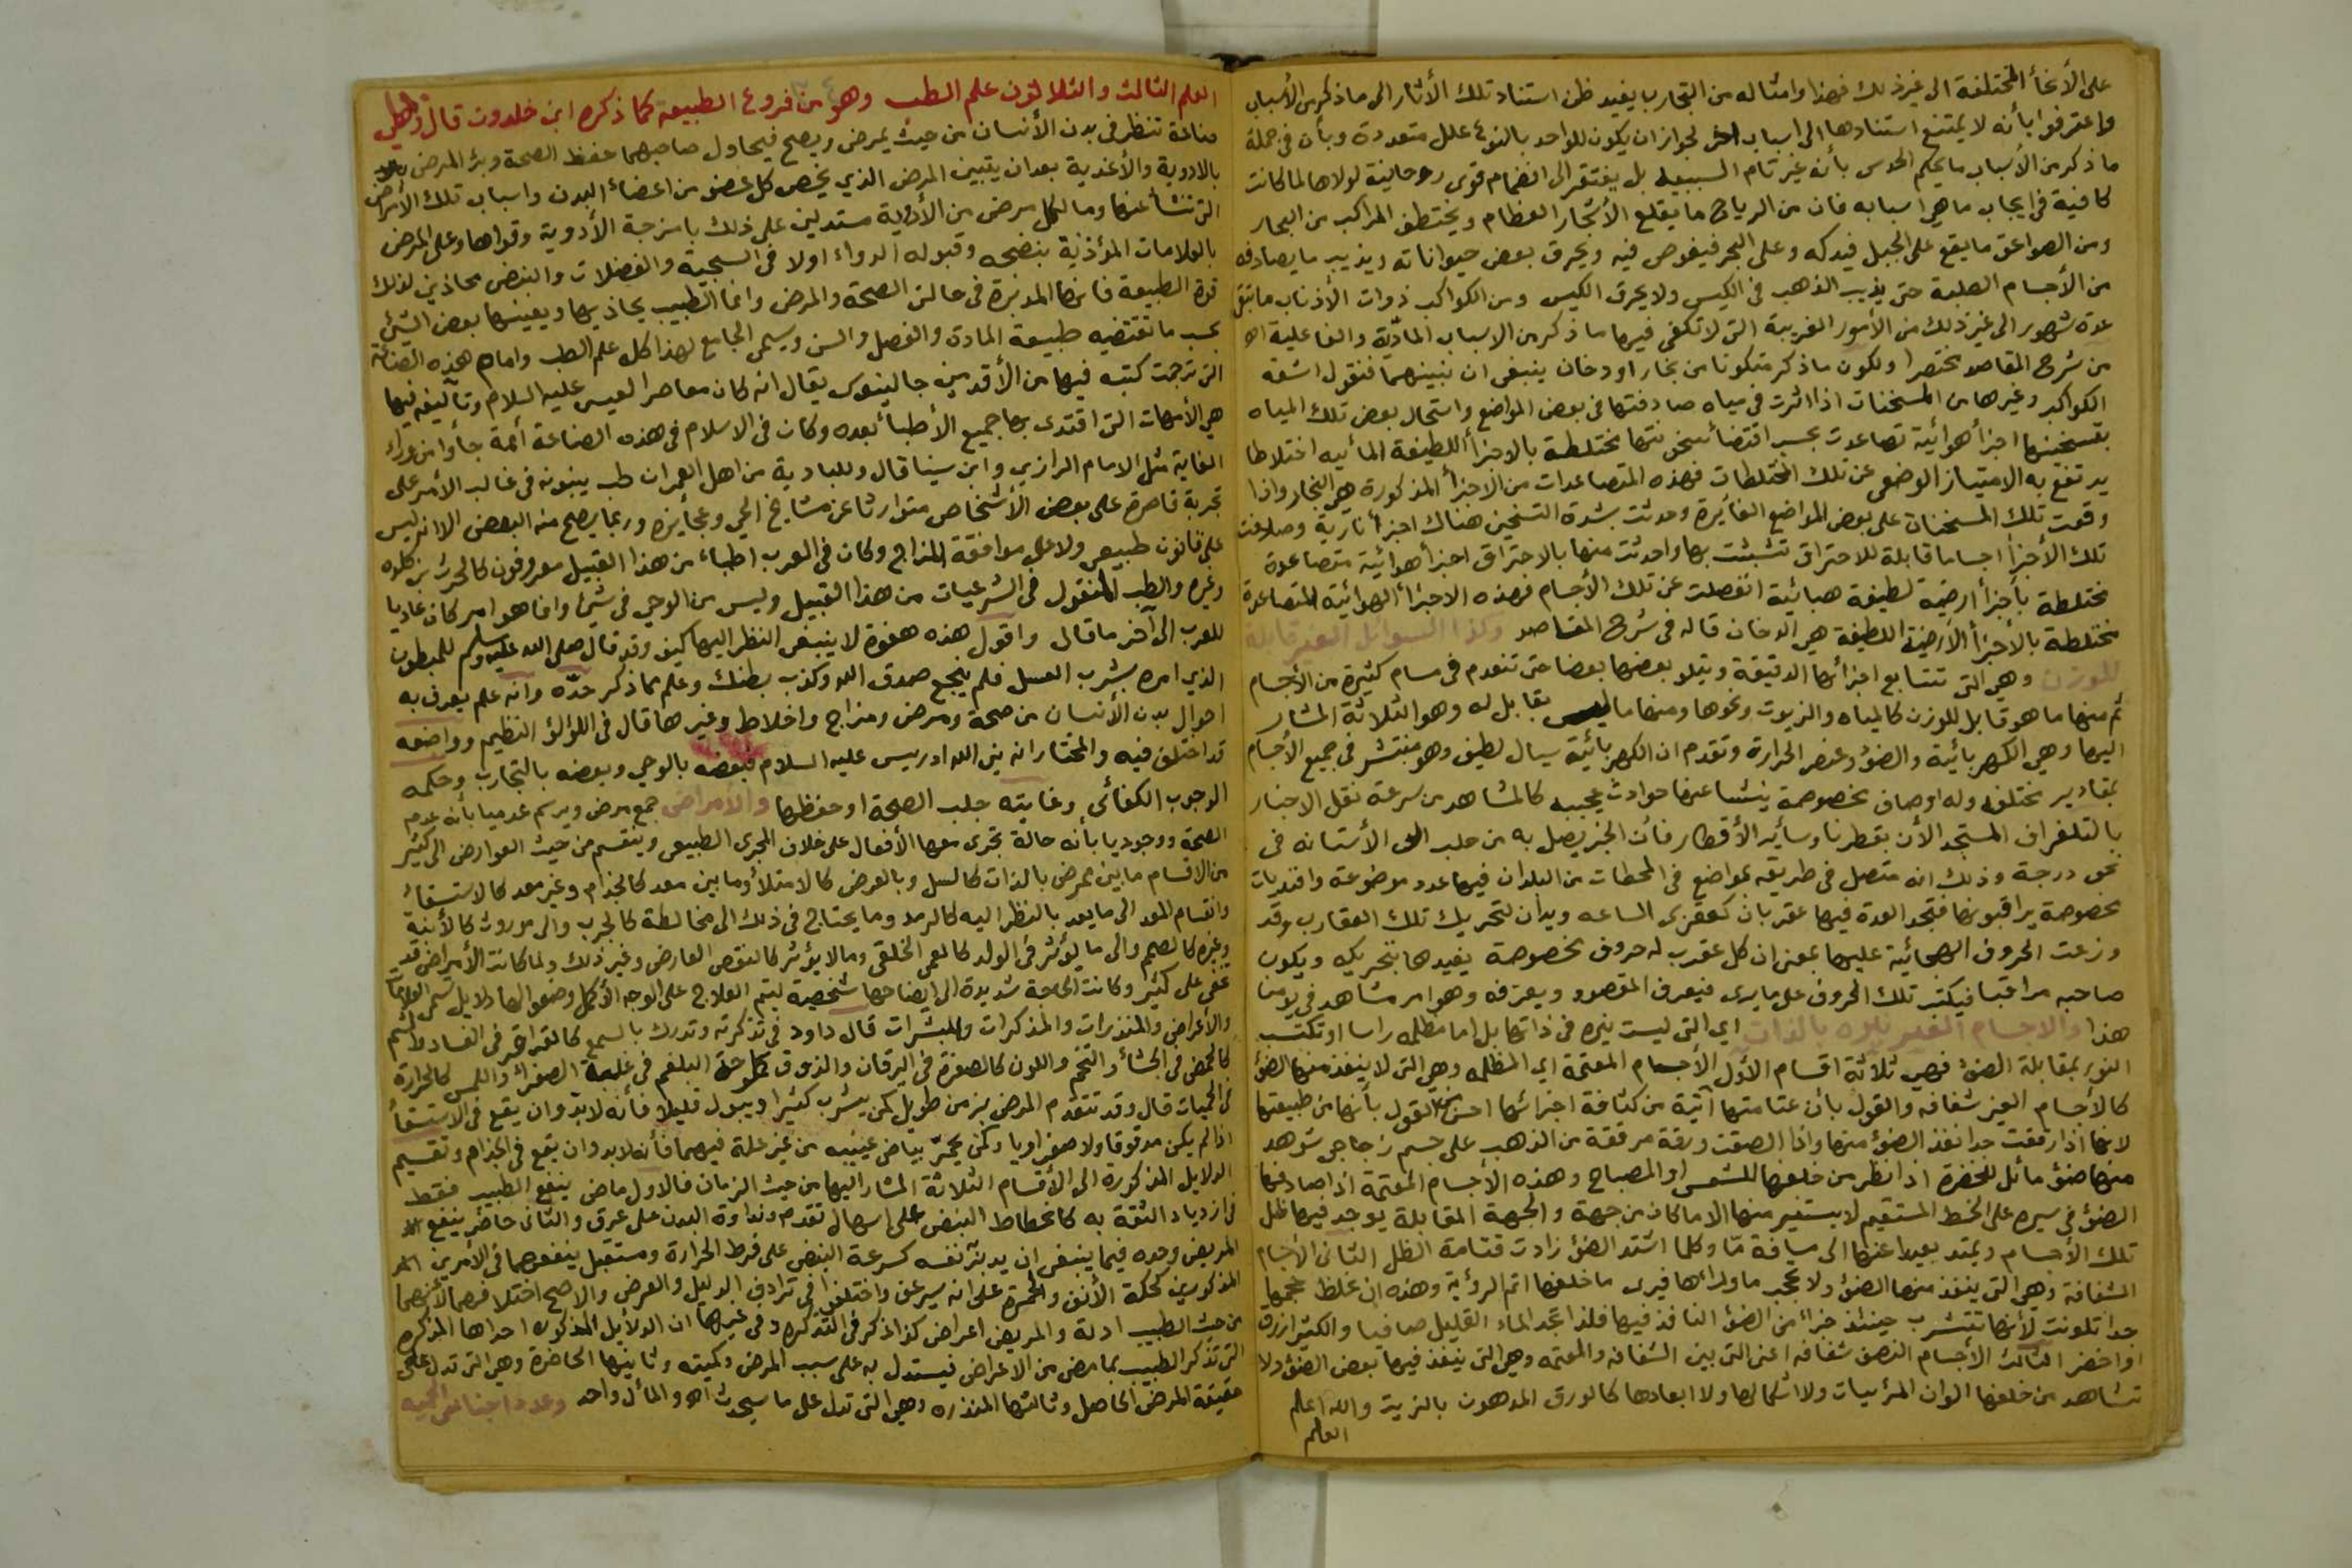 على الأنحأ المختلفة الى غير ذلك فهذا وامثاله من التجارب يفيد ظن استناد تلك الأثار الى ما ذكر من الأسباب
واعترفوا بأنه لا يمتنع استنادها الى اسباب اخر لجواز ان يكون للواحد بالنوع علل متعددة وبأن في جملة
ما ذكر من الأسباب ما يحكم الحدس بأنه غير تام السببيه بل يفتقر الى انضمام قوى روحانية لولاها لما كانت
كافية في ايجاب ما هي اسبابه فان من الرياح ما يقلع الأشجار العظام ويختطف المراكب من البحار
ومن الصواعق ما يقع على الجبل فيدكه وعلى البحر فيغوص فيه ويحرق بعض حيواناته ويذيب ما يصادفه
من الأجسام الصلبة حتى يذيب الذهب في الكيس ولا يحرق الكيس ومن الكواكب ذوات الأذناب ما تبقى
عدة شهور الى غير ذلك من الأمور الغريبة التي لا تكفي فيها ما ذكر من الاسباب المادّية والفاعلية اه
من شرح المقاصد مختصرا ولكون ما ذكر متكونا من بخار او دخان ينبغي ان نبينهما فنقول اشعة
الكواكب وغيرها من المسخنات اذا اثرت في مياه صادفتها في بعض المواضع واستحال بعض تلك المياه
بتسخينها اجزأ هوائية تصاعدت بحسب اقتضأ سخونتها مختلطة بالاجزأ اللطيفة المائيه اختلاطا
يرتفع به الامتياز الوضعي عن تلك المختلطات فهذه المتصاعدات من الاجزأ المذكورة هي البخار واذا
وقعت تلك المسخنات على بعض المواضع الغأيرة وحدثت بشدة التسخين هناك اجزأ نارية وصادفت
تلك الأجزأ اجساما قابلة للاحتراق تشبثت بها واحدثت منها بالاحتراق اجزأ هوائية متصاعدة
مختلطة بأجزأ ارضية لطيفة هبائية انفصلت عن تلك الأجسام فهذه الاجزأ الهوائية المتصاعدة
مختلطة بالأجزأ الأرضية اللطيفة هي الدخان قاله في شرح المقاصد وكذا السوائل الغير قابلة
للوزن وهي التي تتتابع اجزائها الدقيقة ويتلو بعضها بعضا حتى تنعدم في مسام كثيرة من الأجسام
ثم منها ما هو قابل للوزن كالمياه والزيوت ونحوها ومنها ما ليس بقابل له وهو الثلاثة المشار
اليها وهي الكهربائية والضؤ وعنصر الحرارة وتقدم ان الكهربائية سيال لطيف وهو منتشر في جميع الأجسام
بمقادير مختلفه وله اوصاف مخصوصة ينشا عنها حوادث عجيبه كالمشاهد من سرعة نقل الاخبار
بالتلغراف المستجد الأن بقطرنا وسأير الأقطار فأن الخبر يصل به من حلب الى الأستانه في
نحو درجة وذلك انه متصل في طريقه بمواضع في المحطات من البلدان فيها عدد موضوعة وافنديات
مخصوصة يراقبونها فتجد العدة فيها عقربان كعقربي الساعه ويدان لتحريك تلك العقارب وقد
وزعت الحروف الهجائية عليها بمعنى ان كل عقرب له حروف مخصوصة يفيدها بتحريكه ويكون
صاحبه مراقبا فيكتب تلك الحروف على ما يرى فيعرف المقصود ويعرفه وهو امر مشاهد في زمننا
هذا والاجسام الغير نيره بالذات اي التي ليست نيره في ذاتها بل اما مظلمه راسا او تكتسب
النور بمقابلة الضؤ فهي ثلاثة اقسام الأول الأجسام المعتمة اي المظلمه وهي التي لا ينفذ منها الضؤ
كالأجسام الغير شفافه والقول بان عتامتها آتية من كثافة اجزائها احسن من القول بأنها من طبيعتها
لانها اذا رققت جدا نفذ الضؤ منها واذا الصقت ورقة مرققة من الذهب على جسم زجاجي شوهد
منها ضؤ مائل للخضرة اذا نظر من خلفها للشمس او المصباح وهذه الأجسام المعتمة اذا صادفها
الضؤ في سيره على الخط المستقيم لا يستنير منها الا ما كان من جهة والجهة المقابلة يوجد فيها ظل
تلك الأجسام ويمتد بعيدا عنها الى مسافة مّا وكلما اشتد الضؤ زادت قتامة الظل الثاني الأجسام
الشفافة وهي التي ينفذ منها الضؤ ولا تحجب ما ورائها فيرى ما خلفها اتم الرؤية وهذه ان غلظ حجمها
جدا تلونت لأنها تتشرب حينئذ جزأ من الضؤ النافذ فيها فلذا تجد الماء القليل صافيا والكثير ازرق
او اخضر الثالث الأجسام النصف شفافه اعني التي بين الشفافه والمعتمه وهي التي ينفذ فيها بعض الضؤ ولا
تشاهد من خلفها الوان المرئيات ولا اشكالها ولا ابعادها كالورق المدهون بالزيت والله اعلم
العلم
العلم الثالث والثلاثون علم الطب وهو من فروع الطبيعه كما ذكره ابن خلدون قال
صناعة تنظر في بدن الأنسان من حيث يمرض ويصح فيحاول صاحبهما حفظ الصحة وبرؤ المرض
بالادوية والأغذية بعد ان يتبين المرض الذي يخص كل عضو من اعضأ البدن واسباب تلك الأمراض
التي تنشأ عنها وما لكل مرض من الأدوية مستدلين على ذلك بامزجة الأدوية وقواها وعلى المرض
بالعلامات المؤذنة بنضجه وقبوله الدواء اولا في السجية والفضلات والنبض محاذين لذلك
قوة الطبيعة فانها المدبرة في حالتي الصحة والمرض وانما الطبيب يحاذيها ويعينها بعض الشئ
بحسب ما تقتضيه طبيعة المادة والفصل والسن ويسمى الجامع لهذا كله علم الطب وامام هذه الصناعة
التي ترجمت كتبه فيها من الأقدمين جالينوس يقال انه كان معاصرا لعيسى عليه السلام وتآليفه فيها
هي الأمهات التي اقتدى بها جميع الأطبأ بعده وكان في الاسلام في هذه الصناعة أئمة جأوا من وراء
الغاية مثل الامام الرازي وابن سينا قال وللبادية من اهل العمران طب يبنونه في غالب الأمر على
تجربة قاصرة على بعض الأشخاص متوارثا عن مشايخ الحي وعجأيزه وربما يصح منه البعض الا انه ليس
على قانون طبيعي ولا على موافقة المزاج وكان في العرب اطباء من هذا القبيل معروفون كالحرث بن كلده
وغيره والطب المنقول في الشرعيات من هذا القبيل وليس من الوحي في شئ وانما هو امر كان عاديا
للعرب الى آخر ما قال واقول هذه هفوة لا ينبغي النظر اليها كيف وقد قال صلى الله عليه وسلم للمبطون
الذي امره بشرب العسل فلم ينجع صدق الله وكذب بطنك وعلم مما ذكر حدّه وانه علم يعرف به
احوال بدن الأنسان من صحة ومرض ومزاج واخلاط وغيرها قال في اللؤلؤ النظيم وواضعه
قد اختلف فيه والمختار انه نبي الله ادريس عليه السلام فبعضه بالوحي وبعضه بالتجارب وحكمه
الوجوب الكفائي وغايته جلب الصحة او حفظها والأمراض جمع مرض ويرسم عدميا بأنه عدم
الصحة ووجوديا بأنه حالة تجري معها الأفعال على خلاف المجرى الطبيعي وينقسم من حيث العوارض الى كثير
من الاقسام ما بين ممرض بالذات كالسل وبالعرض كالامتلأ وما بين معد كالجذام وغير معد كالاستسقأ
وانقسام المعد الى ما يعد بالنظر اليه كالرمد وما يحتاج في ذلك الى مخالطة كالجرب والى موروث كالأبنة
وغيره كالصمم والى ما يؤثر في الولد كالعمى الخلقي وما لا يؤثر كالنقص العارض وغير ذلك ولما كانت الأمراض قد
تخفى على كثير وكانت الحاجة شديدة الى ايضاحها شخصية ليتم العلاج على الوجه الأكمل وضعوا لها دلايل تسمى العلامات
والأعراض والمنذرات والمذكرات والمبشرات قال داود في تذكرته وتدرك بالسمع كالقراقر في الفساد والشم
كالحمض في الجشأ والتخم واللون كالصفرة في اليرقان والذوق كملوحة البلغم في غلبة الصفرأ واللمس كالحرارة
في الحميات قال وقد تتقدم المرض بزمن طويل كمن يشرب كثيرا ويبول قليلا فأنه لابدّ وان يقع في الاستسقأ
اذا لم يكن مدقوقا ولا صفراويا وكمن يحمرّ بياض عينيه من غير علة فيهما فأنه لابد وان يقع في الجذام وتقسيم
الدلايل المذكورة الى الأقسام الثلاثة المشار اليها من حيث الزمان فالاول ماض ينفع الطبيب فقط
في ازدياد الثقة به كانحطاط النبض على اسهال تقدم ونداوة البدن على عرق والثاني حاضر ينفع
المريض وحده فيما ينبغي ان يدبّر نفسه كسرعة النبض على فرط الحرارة ومستقبل ينفعهما في الأمرين
المذكورين كحكة الأنف والحمرة على انه سيرعف واختلفوا في ترادف الدليل والعرض والاصح اختلافهما لأنهما
من حيث الطبيب ادلة والمريض اعراض كذا ذكر في التذكره وفي غيرها ان الدلأيل المذكوره احداها المذكره
التي تذكر الطبيب بما مضى من الاعراض فيستدل به على سبب المرض وكميته وثانيتها الحاضرة وهي التي تدل على
حقيقة المرض الحاصل وثالثتها المنذره وهي التي تدل على ما سيحدث اه والمأل واحد وعدد اجناس الحميه